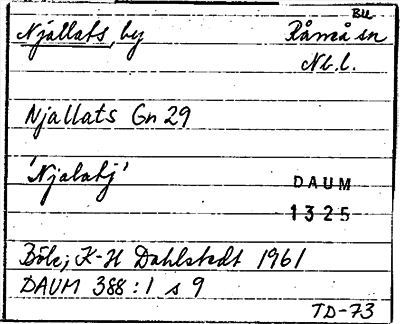 BU
Njallats, by Råneå sn
Nb.l.
Njallats Gn 29
'Njalatj'
DAUM
1325
Böle; K-H Dahlstedt 1961
DAUM 388:1 s 9
TD-73